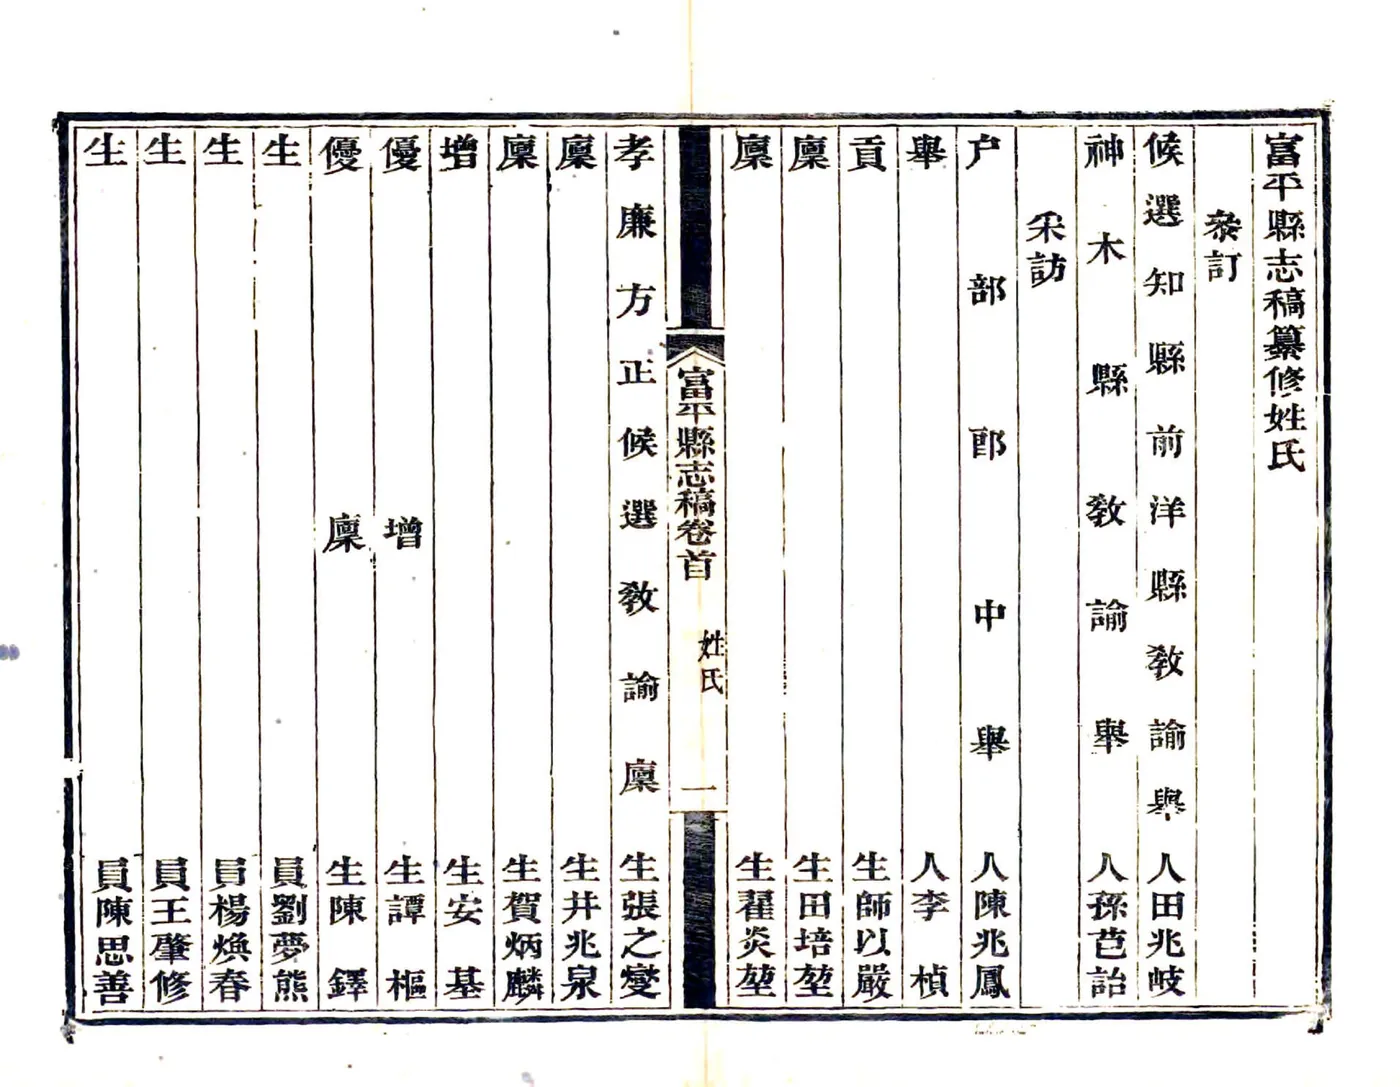 富平縣志稿纂修姓氏
叅訂
候選知縣前洋縣敎諭舉人田兆岐
神木縣敎諭舉人孫芑詒
采訪
户部郎中舉人陳兆鳳
舉人李楨
貢生師以嚴
廩生田培堃
廩生翟炎堃
富平縣志稿卷首
姓氏
一
孝廉方正候選敎諭廩生張之燮
廩生井兆泉
廩生賀炳麟
增生安基
優增生譚樞
優廩生陳鐸
生員劉夢熊
生員楊煥春
生員王肇修
生員陳思善